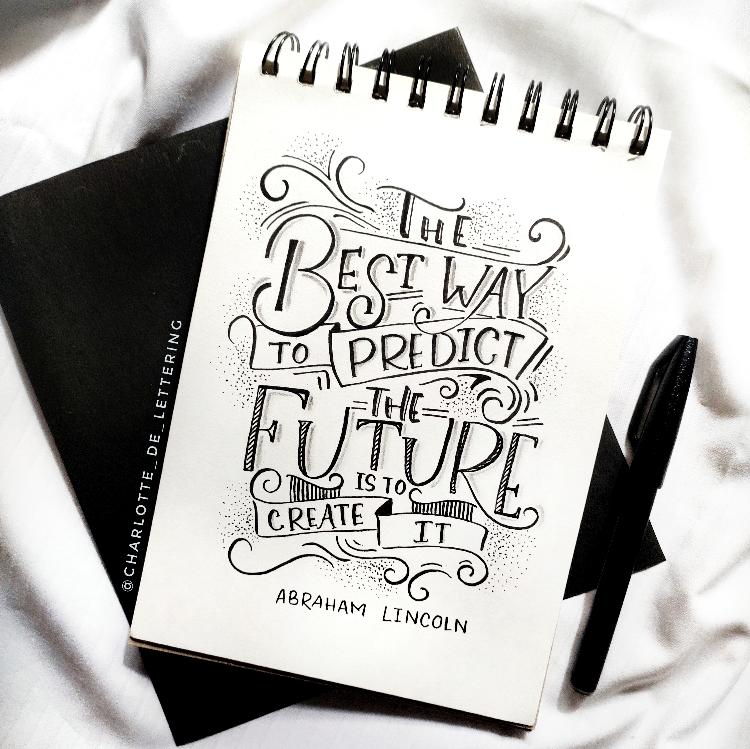 THE
BEST WAY
TO PREDICT
THE
FUTURE
IS TO
CREATE IT
ABRAHAM LINCOLN
@CHARLOTTE_DE_LETTERING